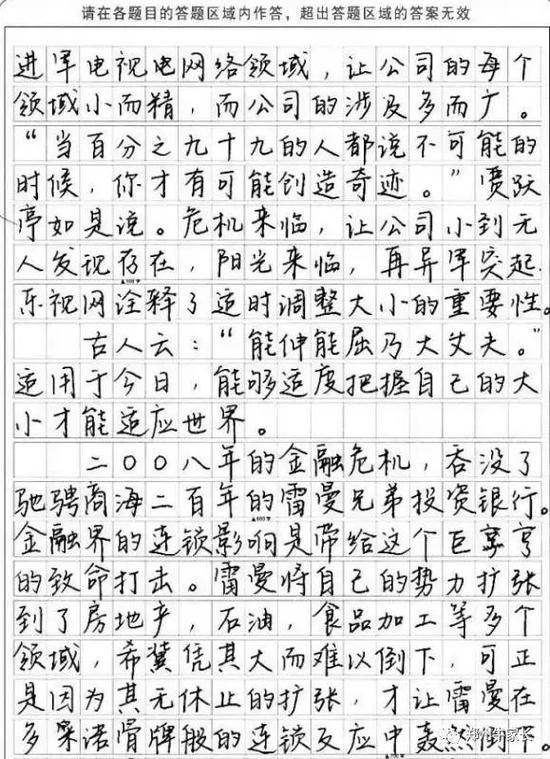 请在各题目的答题区域内作答，超出答题区域的答案无效
进军电视电网络领域，让公司的每个
领域小而精，而公司的涉及多而广。
“当百分之九十九的人都说不可能的
时候，你才有可能创造奇迹。”贾跃
亭如是说。危机来临，让公司小到无
人发现存在，阳光来临，再异军突起．
乐视网诠释了适时调整大小的重要性。
古人云：“能伸能屈乃大丈夫。”
适用于今日，能够适度把握自己的大
小才能适应世界。
二〇〇八年的金融危机，吞没了
驰骋商海二百年的雷曼兄弟投资银行。
金融界的连锁影响是带给这个巨亨
的致命打击。雷曼将自己的势力扩张
到了房地产，石油，食品加工等多个
领域，希冀凭其大而难以倒下，可正
是因为其无休止的扩张，才让雷曼在
多米诺骨牌般的连锁反应中轰然倒下。